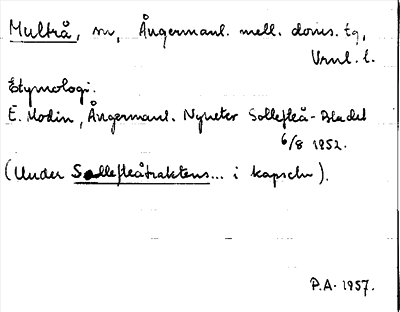 Multrå, sn, Ångermanl. mell. doms. tg,
Vrnl. l.
Etymologi.
E. Modin, Ångermanl. Nyheter Sollefteå-Bladet
6/8 1952.
(Under Sollefteåtraktens... i kapseln).
P.A. 1957.